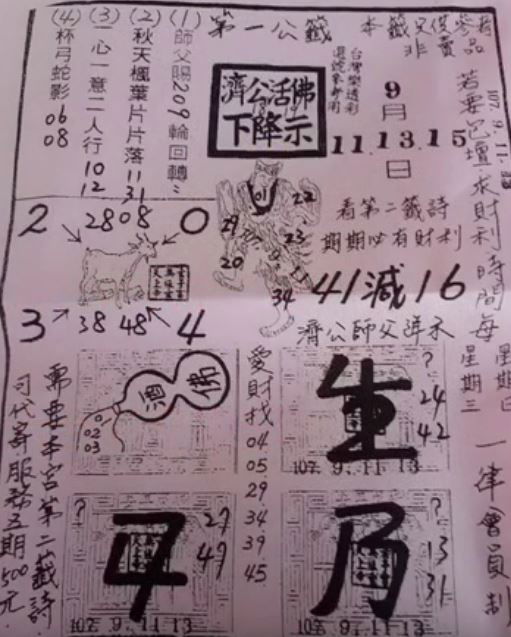 第一公籤
本籤只供參考
非賣品
(1)師父賜209輪回轉
(2)秋天楓葉片片落11 31
(3)一心一意二人行10 12
(4)杯弓蛇影06 08
濟公活佛
下降示
9月
11.13.15
日
107.9.11.
看第二籤詩
期期必有財利
41減16
濟公師父降示
2
28 08
0
3
38 48
4
01
22
29
23
20
34
酒
佛
01
02
03
愛財找
04
05
29
34
39
45
生
?
24
42
107. 9. 11 13
?
27
47
107. 9. 11 13
?
13
31
107. 9. 11 13
若要巴壇求財利時間每
星期三
一律會員制
需要本宮第二籤詩
可代寄服務五期500元